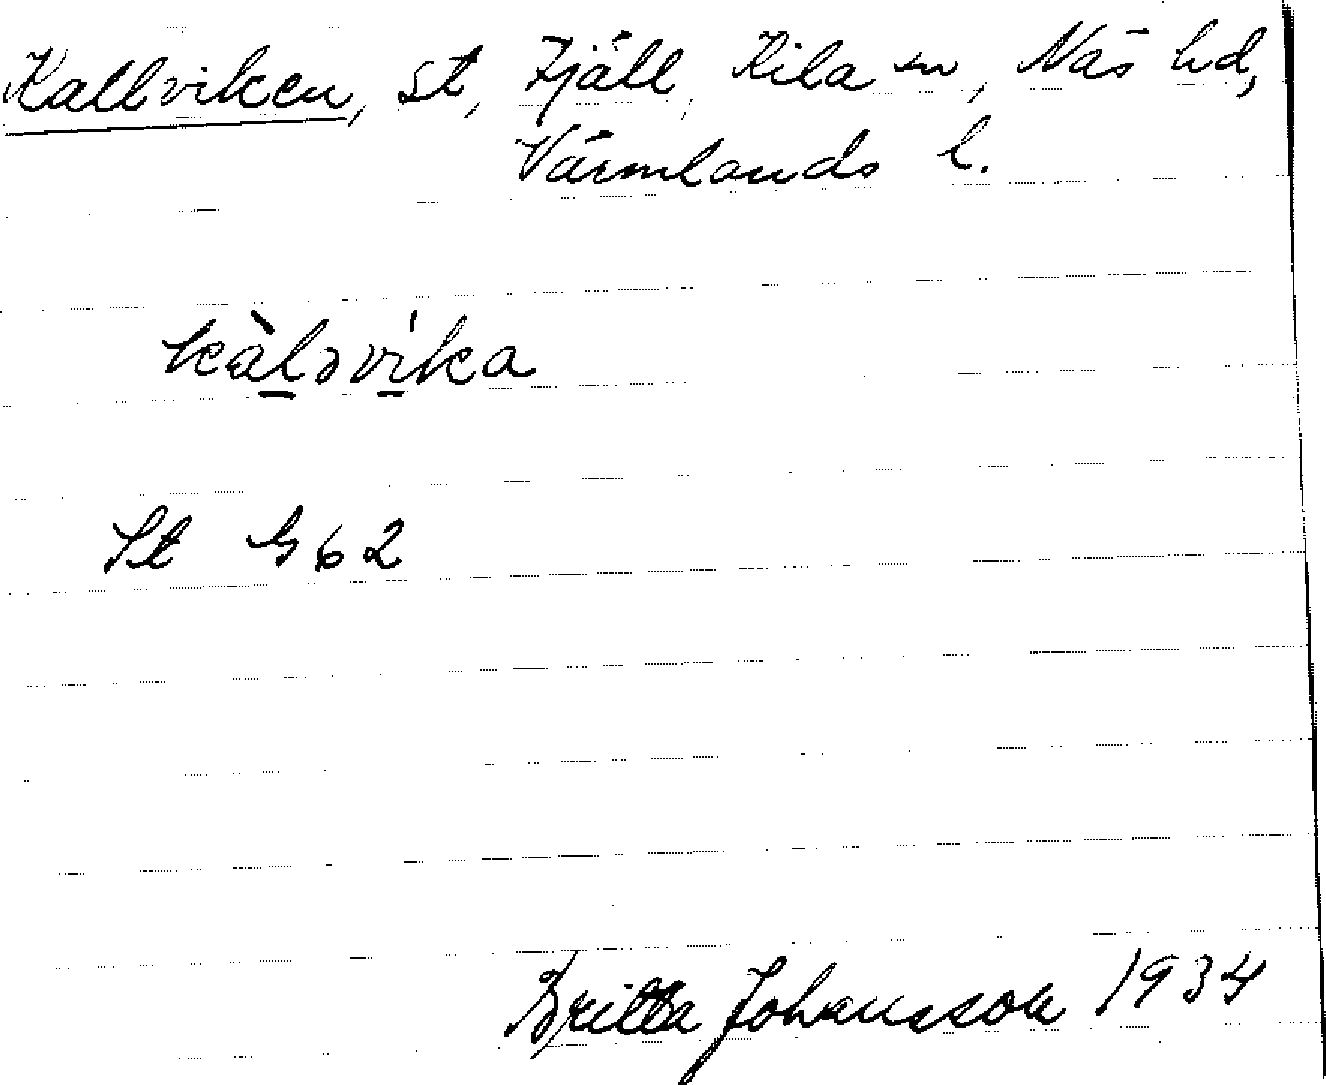 Kallviken, st, Fjäll, Kila sn, Näs hd,
Värmlands l.
kàləvi'ka
St G62
Britta Johansson 1934